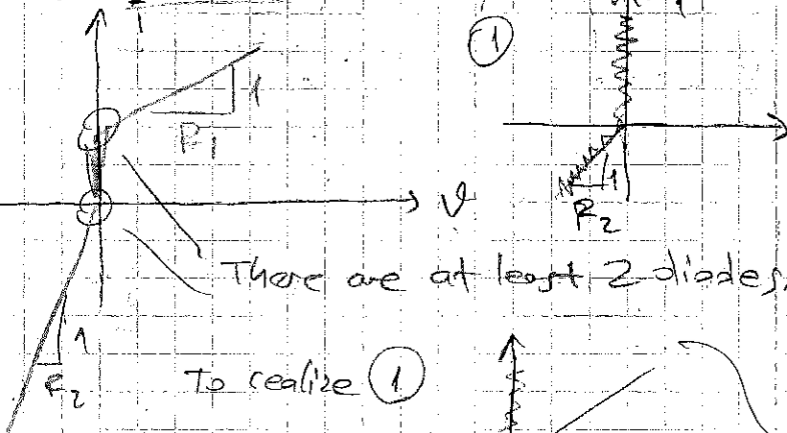 i
1
1
R1
v
1
R2
There are at least 2 diodes.
1
R2
To realize 1